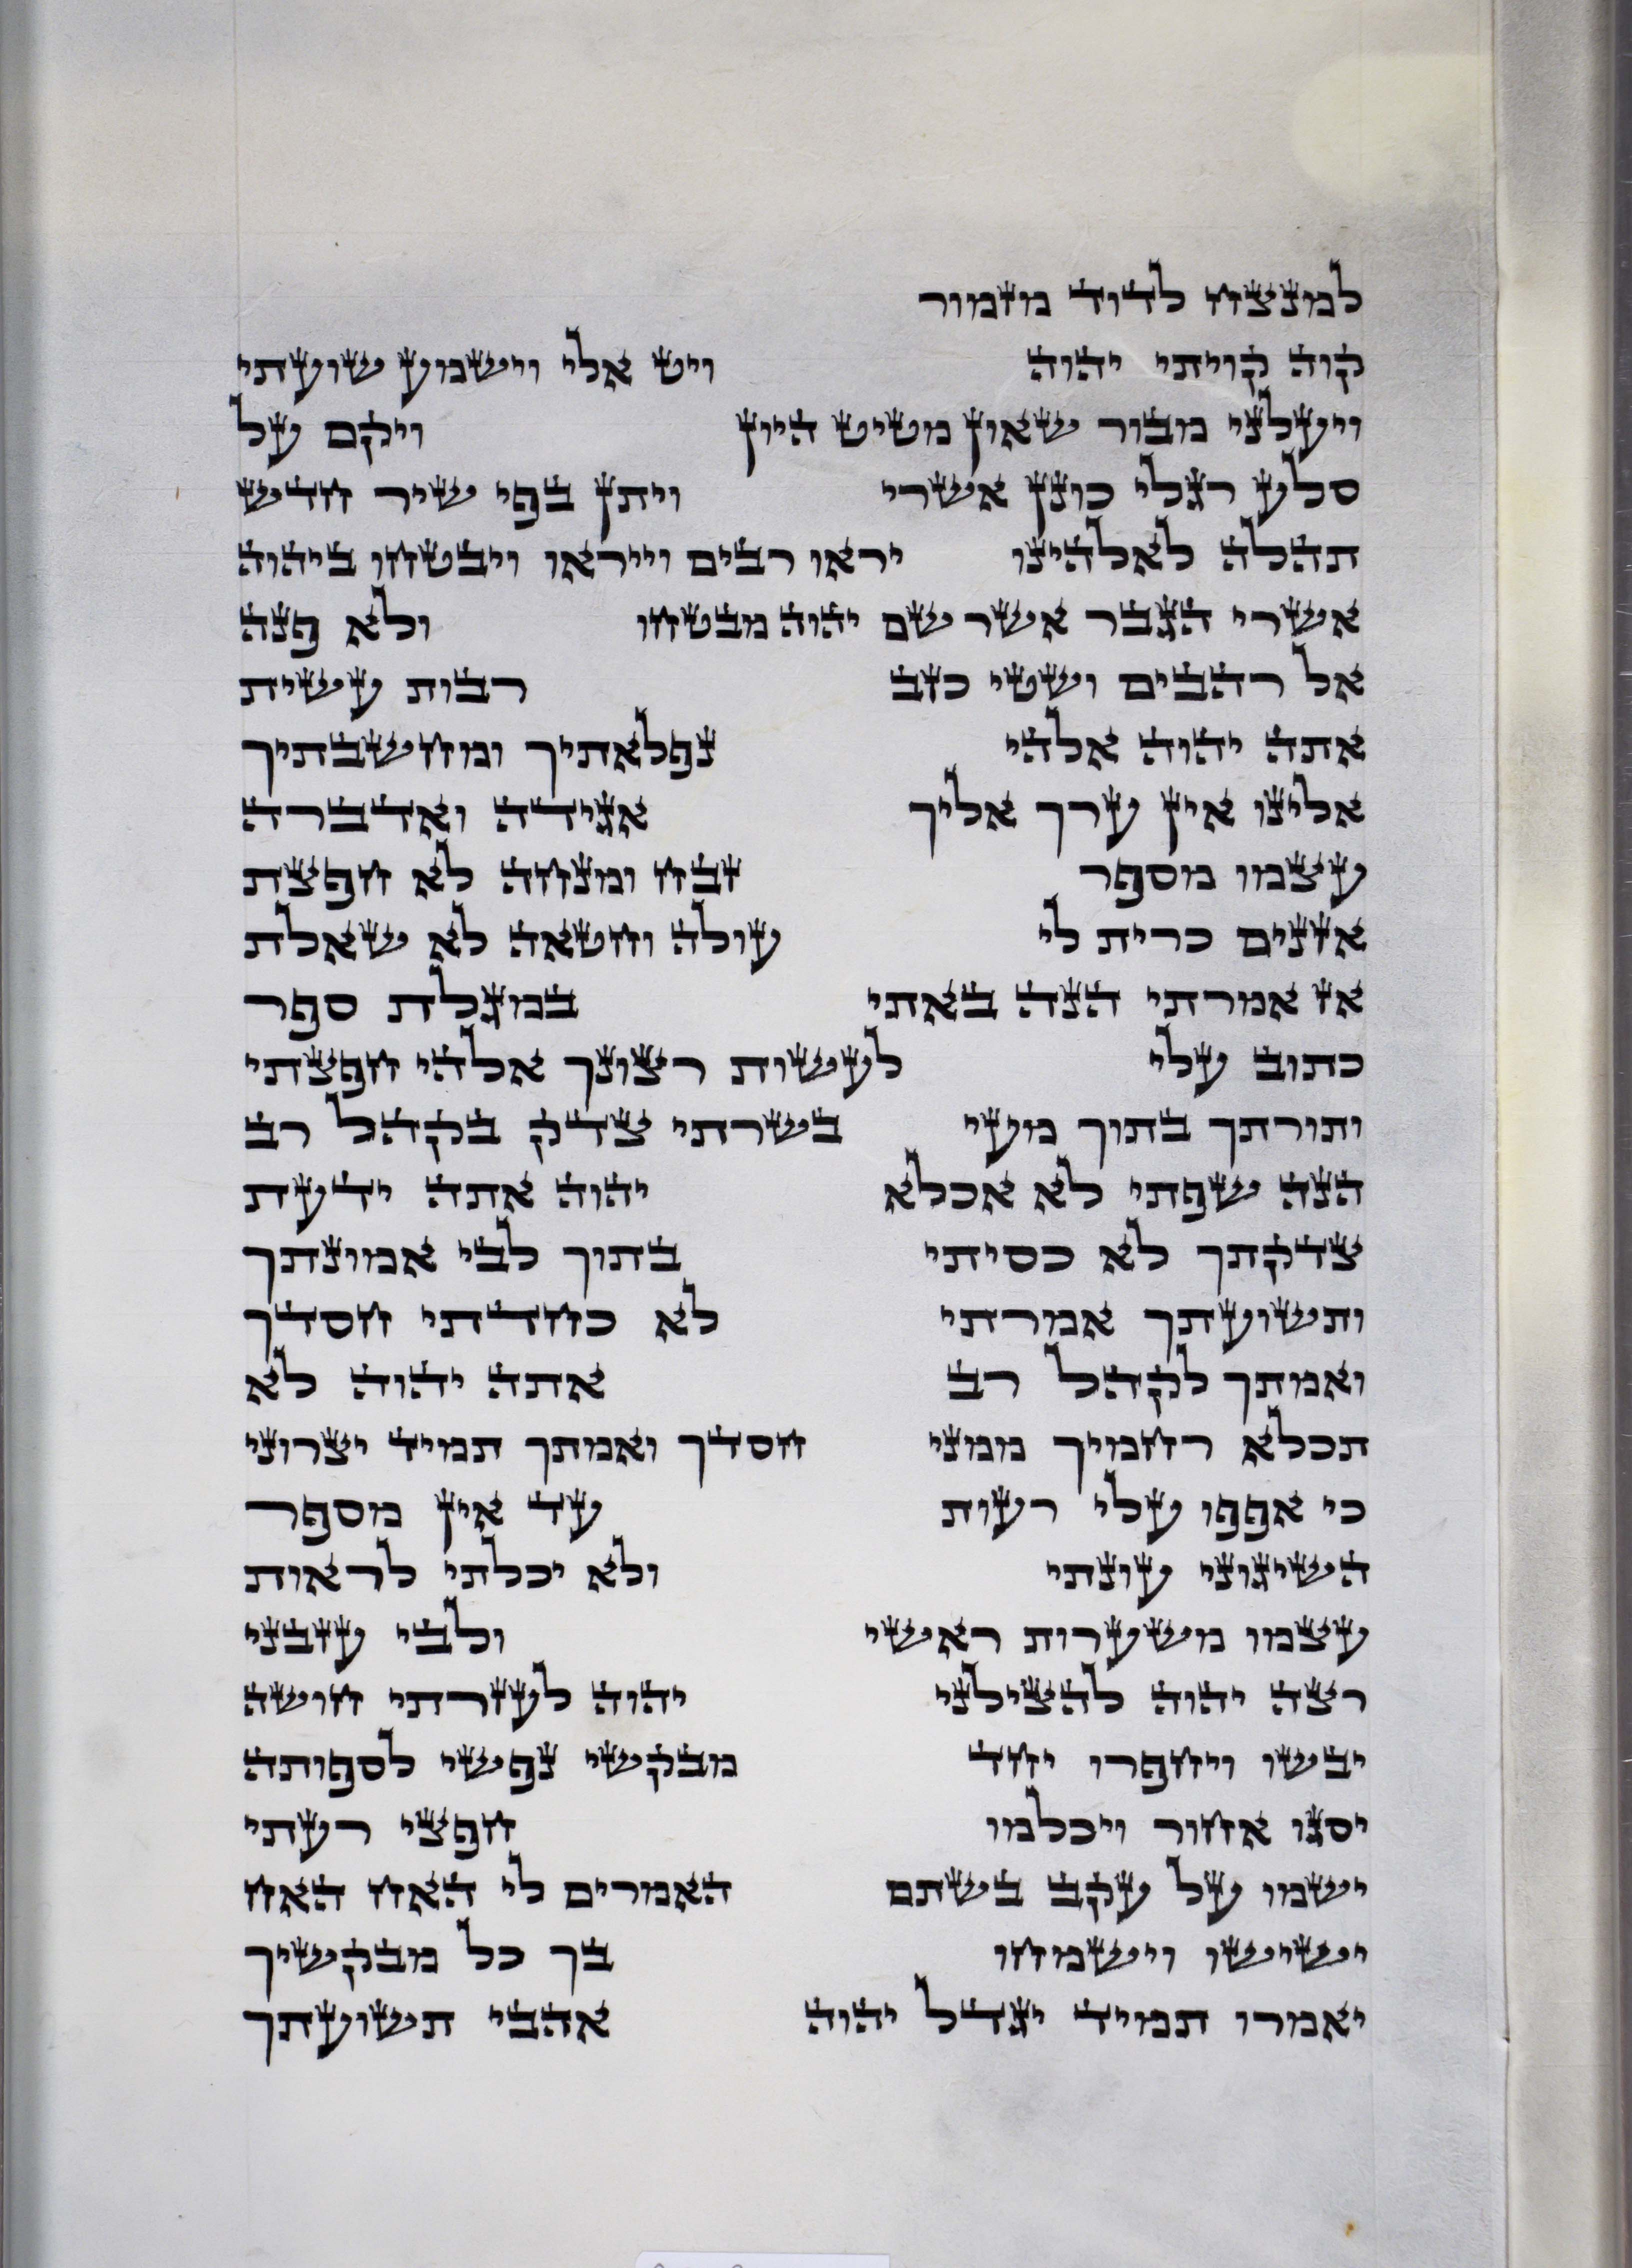 למנצח לדוד מזמור
קוה קויתי יהוה ויט אלי וישמע שועתי
ויעלני מבור שאון מטיט היון ויקם על
סלע רגלי כונן אשרי ויתן בפי שיר חדש
תהלה לאלהינו יראו רבים וייראו ויבטחו ביהוה
אשרי הגבר אשר שם יהוה מבטחו ולא פנה
אל רהבים ושטי כזב רבות עשית
אתה יהוה אלהי נפלאתיך ומחשבתיך
אלינו אין ערך אליך אגידה ואדברה
עצמו מספר זבח ומנחה לא חפצת
אזנים כרית לי עולה וחטאה לא שאלת
אז אמרתי הנה באתי במגלת ספר
כתוב עלי לעשות רצונך אלהי חפצתי
ותורתך בתוך מעי בשרתי צדק בקהל רב
הנה שפתי לא אכלא יהוה אתה ידעת
צדקתך לא כסיתי בתוך לבי אמונתך
ותשועתך אמרתי לא כחדתי חסדך
ואמתך לקהל רב אתה יהוה לא
תכלא רחמיך ממני חסדך ואמתך תמיד יצרוני
כי אפפו עלי רעות עד אין מספר
השיגוני עונתי ולא יכלתי לראות
עצמו משערות ראשי ולבי עזבני
רצה יהוה להצילני יהוה לעזרתי חושה
יבשו ויחפרו יחד מבקשי נפשי לספותה
יסגו אחור ויכלמו חפצי רעתי
ישמו על עקב בשתם האמרים לי האח האח
ישישו וישמחו בך כל מבקשיך
יאמרו תמיד יגדל יהוה אהבי תשועתך